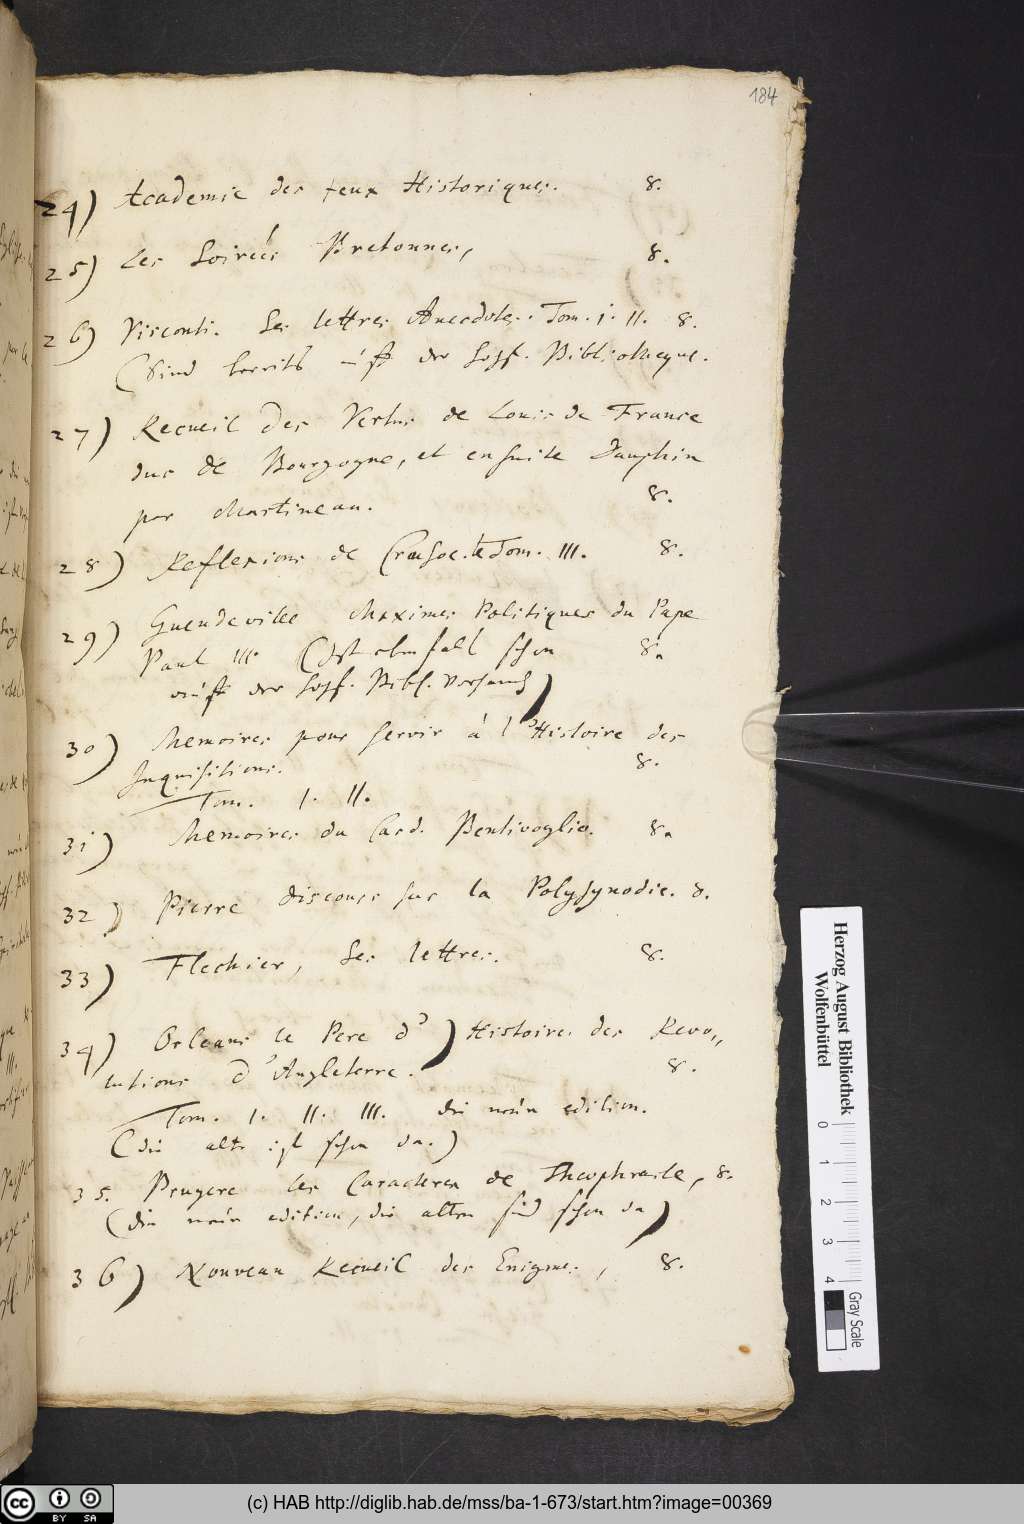 184
24) Academie des jeux Historiques. 8.
25) Les Soireés Bretonnes, 8.
26) Visconti. Ses lettres Anecdotes. Tom. i. II. 8.
(Sind bereits auf der Hoff. Bibliotheque.
27) Recueil des Vertus de Louis de France
duc de Bourgogne, et ensuite Dauphin
par Martineau. 8.
28) Reflexions de Crusoe. le Tom. III. 8.
29) Gueudeville Maximes Politiques du Pape
Paul III. (Ist schon 8.
auf der Hoff. Bibl.
30) Memoires pour servir á l'Histoire des
Inquisitions. 8.
Tom. I. II.
31) Memoires du Card. Bentivoglio. 8.
32) Pierre discours sur la Polysynodie. 8.
33) Flechier, Ses lettres. 8.
34) Orleans le Pere d') Histoires des Revo„
lutions d'Angleterre. 8.
Tom. I. II. III. die neue edition.
(die alte ist schon da.)
35. Bruyere les Caracteres de Theophraste, 8.
(die neue edition, die alten sind schon da)
36) Nouveau Recueil des Enigmes, 8.
Herzog August Bibliothek
Wolfenbüttel
0 1 2 3 4
Gray Scale
cc BY SA
(c) HAB http://diglib.hab.de/mss/ba-1-673/start.htm?image=00369